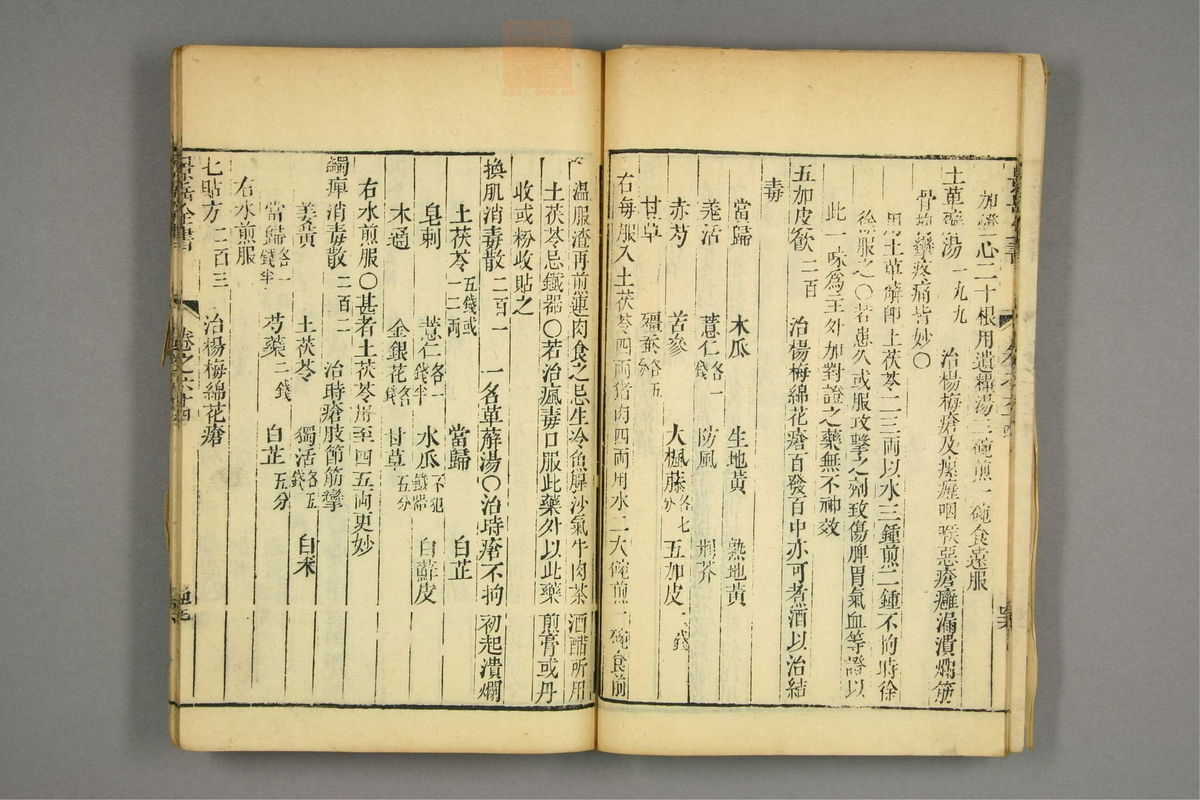 加燈心二十根用遺糧湯三碗煎一碗食遠服
土萆薢湯 一九九 治楊梅瘡及瘰癧咽喉惡瘡癰漏潰爛筋
骨拘攣疼痛皆妙○
用土萆薢即土茯苓二三兩以水三鍾煎二鍾不拘時徐
徐服之○若患久或服攻擊之劑致傷脾胃氣血等證以
此一味爲主外加對證之藥無不神效
五加皮飲 二百 治楊梅綿花瘡百發百中亦可煮酒以治結
毒
當歸 木瓜 生地黃 熟地黃
羗活 薏仁各一錢 防風 荆芥
赤芍 苦參 大楓藤各七分 五加皮一錢
甘草 殭蚕各五分
右每服入土茯苓四两猪肉四两用水二大碗煎一碗食前
溫服渣再煎連肉食之忌生冷魚腥沙氣牛肉茶酒醋所用
土茯苓忌鐵器○若治瘋毒口服此藥外以此藥煎膏或丹
收或粉收貼之
換肌消毒散 二百一 一名萆薢湯○治時瘡不拘初起潰爛
土茯苓五錢或一二兩 當歸 白芷
皂刺 薏仁各一錢半 木瓜不犯鐵器 白鮮皮
木通 金銀花各七錢 甘草五分
右水煎服○甚者土茯苓用至四五兩更妙
蠲痺消毒散 二百二 治時瘡肢節筋攣
姜黃 土茯苓 獨活各五錢 白朮
當歸各一錢半 芍藥一錢 白芷五分
右水煎服
七貼方 二百三 治楊梅綿花瘡
景岳全書 卷之六十四